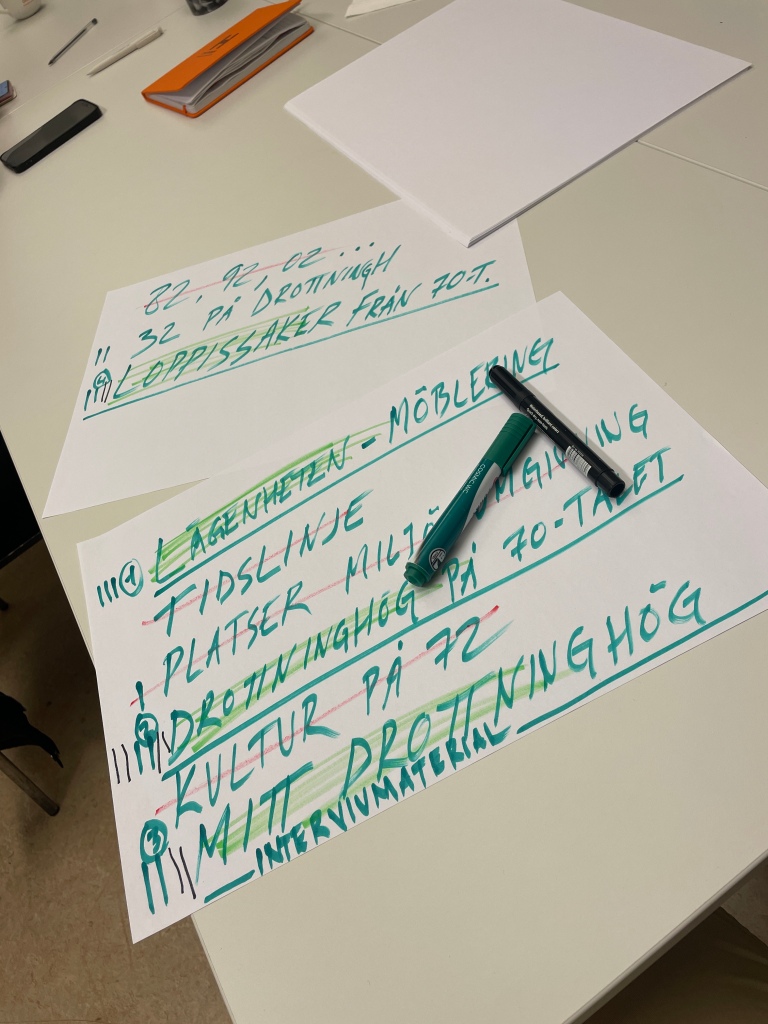 82, 92, 02...
32 PÅ DROTTNINGH
4 LOPPISSAKER FRÅN 70-T.
1 LÄGENHETEN - MÖBLERING
TIDSLINJE
PLATSER MILJÖ OMGIVNING
2 DROTTNINGHÖG PÅ 70-TALET
KULTUR PÅ 72
3 MITT DROTTNINGHÖG
INTERVIUMATERIAL